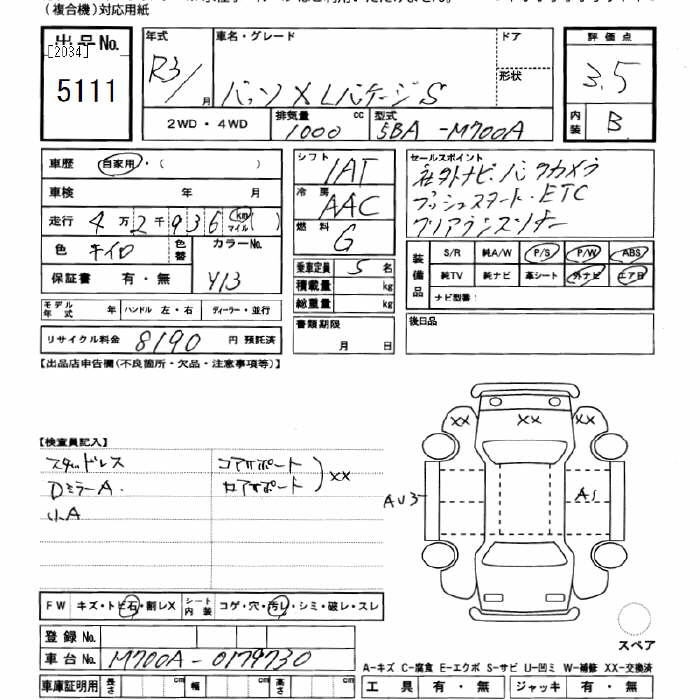 (複合機)対応用紙
出品No.
[2034]
5111
年式
R3/
月
車名・グレード
パッソ X LパッケージS
ドア
形状
2WD・4WD
排気量
1000
cc
型式
5BA -M700A
評価点
3.5
内装
B
車歴 自家用・( )
車検 年 月
走行 4万2千936 km マイル ( )
色 キイロ
色替
カラーNo.
Y13
保証書 有・無
モデル年式 年 ハンドル 左・右 ディーラー・並行
リサイクル料金 8190 円 預託済
シフト
IAT
冷房
AAC
燃料
G
乗車定員 5 名
積載量 kg
総重量 kg
書類期限
月 日
セールスポイント
社外ナビ・バックカメラ
プッシュスタート・ETC
クリアランスソナー
装備品
S/R 純A/W P/S P/W ABS
純TV 純ナビ 革シート 外ナビ エアB
ナビ型番:
後日品
【出品店申告欄(不良箇所・欠品・注意事項等)】
【検査員記入】
スタッドレス
DミラーA.
小A
コアサポート
XX
XX
XX
XX
AU3
A1
FW キズ・トビ石・割レX
シート内装 コゲ・穴・汚レ・シミ・破レ・スレ
登録No.
車台No. M700A-0179730
車庫証明用 長さ cm 幅 cm 高さ cm
スペア
A-キズ C-腐食 E-エクボ S-サビ U-凹ミ W-補修 XX-交換済
工具 有・無 ジャッキ 有・無